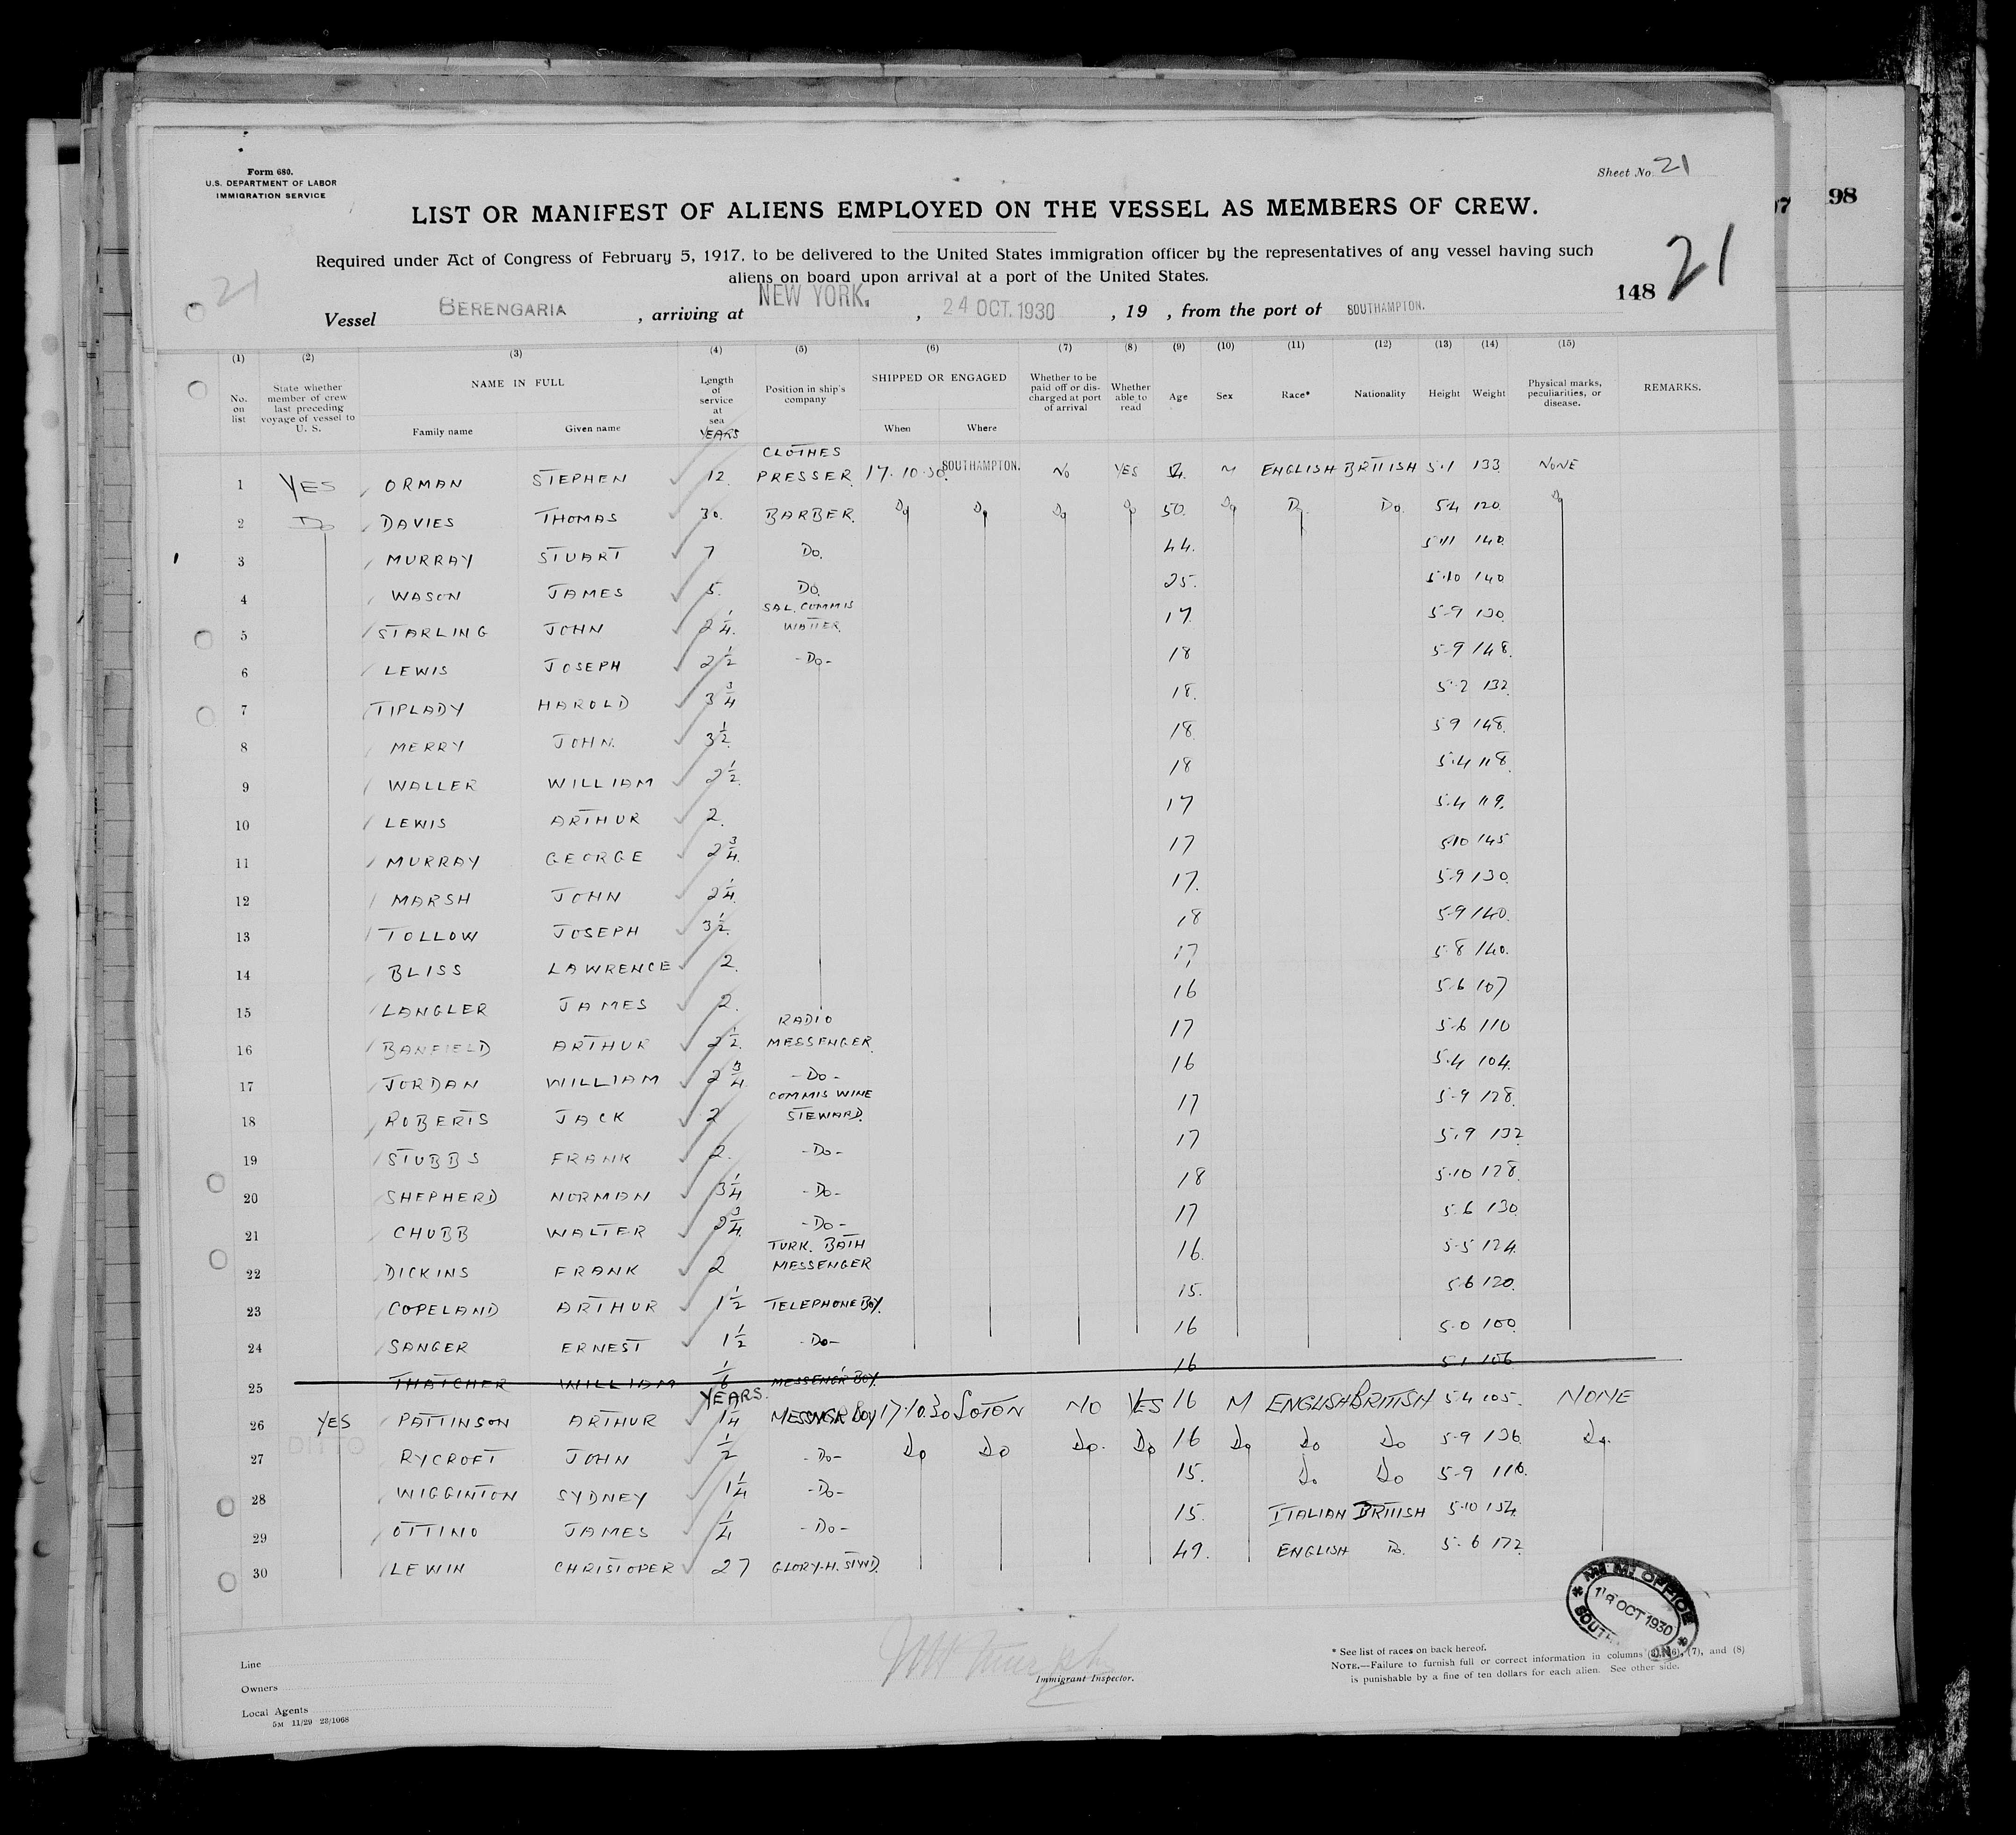 Form 680.
U.S. DEPARTMENT OF LABOR
IMMIGRATION SERVICE
Sheet No. 21
LIST OR MANIFEST OF ALIENS EMPLOYED ON THE VESSEL AS MEMBERS OF CREW.
Required under Act of Congress of February 5, 1917, to be delivered to the United States immigration officer by the representatives of any vessel having such
aliens on board upon arrival at a port of the United States.
21
148 21
97 98
Vessel BERENGARIA, arriving at NEW YORK., 24 OCT. 1930, 19 , from the port of SOUTHAMPTON.
(1) (2) (3) (4) (5) (6) (7) (8) (9) (10) (11) (12) (13) (14) (15)
No. on list
State whether member of crew last preceding voyage of vessel to U. S.
NAME IN FULL
Family name Given name
Length of service at sea
YEARS
Position in ship's company
SHIPPED OR ENGAGED
When Where
Whether to be paid off or discharged at port of arrival
Whether able to read
Age Sex Race* Nationality Height Weight
Physical marks, peculiarities, or disease.
REMARKS.
1 YES ORMAN STEPHEN 12. CLOTHES PRESSER 17.10.30 SOUTHAMPTON. NO YES M ENGLISH BRITISH 5.1 133 NONE
2 Do DAVIES THOMAS 30. BARBER. Do Do Do Do 50. Do Do. Do. 5.4 120. Do
3 MURRAY STUART 7 Do. 44. 5.11 140.
4 WASON JAMES 5. Do. 25. 5.10 140
5 STARLING JOHN 2 1/4. SAL. COMMIS WAITER. 17. 5-9 130.
6 LEWIS JOSEPH 2 1/2 -Do- 18 5-9 148.
7 TIPLADY HAROLD 3 3/4 18. 5.2 132.
8 MERRY JOHN. 3 1/2. 18. 5 9 148.
9 WALLER WILLIAM 2 1/2. 18 5.4 118.
10 LEWIS ARTHUR 2. 17 5.4 119.
11 MURRAY GEORGE 2 3/4. 17 5.10 145
12 MARSH JOHN 2 1/4. 17. 5.9 130.
13 TOLLOW JOSEPH 3 1/2. 18 5.9 140.
14 BLISS LAWRENCE 2. 17 5.8 140.
15 LANGLER JAMES 2. 16 5.6 107
16 BANFIELD ARTHUR 2 1/2. RADIO MESSENGER. 17 5.6 110
17 JORDAN WILLIAM 2 3/4. -Do- 16 5.4 104.
18 ROBERTS JACK 2 COMMIS WINE STEWARD. 17 5-9 128.
19 STUBBS FRANK 2. -Do- 17 5.9 132
20 SHEPHERD NORMAN 3 1/4 -Do- 18 5.10 128.
21 CHUBB WALTER 2 3/4. -Do- 17 5.6 130
22 DICKINS FRANK 2 TURK. BATH MESSENGER 16. 5-5 124.
23 COPELAND ARTHUR 1 1/2 TELEPHONE BOY. 15. 5.6 120.
24 SANGER ERNEST 1 1/2 -Do- 16 5.0 100.
25 THATCHER WILLIAM 1/6 MESSENGR BOY. 16 5.1 106
YEARS.
26 YES PATTINSON ARTHUR 1 1/4 MESSNGR BOY 17.10.30 SOTON NO YES 16 M ENGLISH BRITISH 5.4 105. NONE
27 DITTO RYCROFT JOHN 1/2 -Do- Do Do Do. Do 16 Do Do Do 5-9 136. Do.
28 WIGGINTON SYDNEY 1 1/4 -Do- 15. Do Do 5-9 116.
29 OTTINO JAMES 1/4 -Do- 15. ITALIAN BRITISH 5.10 154.
30 LEWIN CHRISTOPER 27 GLORY-H. STWD. 49. ENGLISH Do. 5.6 172.
Line
Owners
Local Agents
5M 11/29 23/1068
Immigrant Inspector.
* See list of races on back hereof.
NOTE.—Failure to furnish full or correct information in columns (6), (7), and (8)
is punishable by a fine of ten dollars for each alien. See other side.
OFFICE
OCT 1930